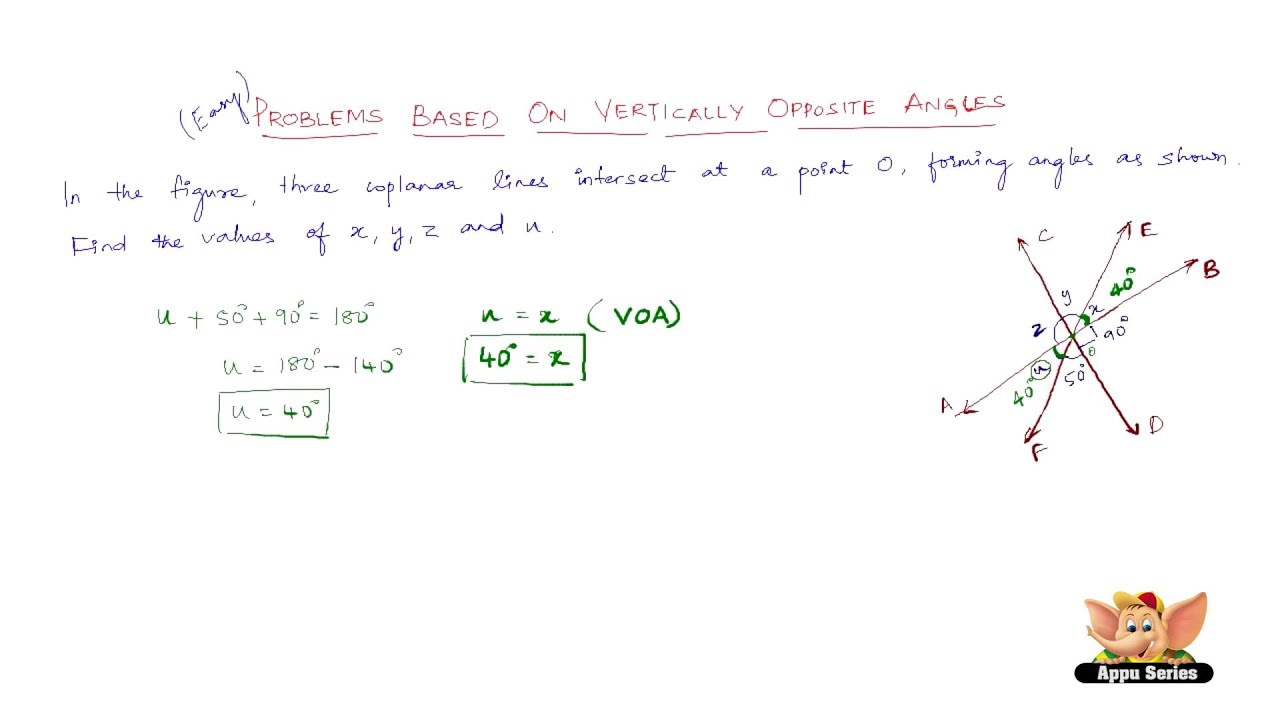 (Easy) PROBLEMS BASED ON VERTICALLY OPPOSITE ANGLES
In the figure, three coplanar lines intersect at a point O, forming angles as shown.
Find the values of x, y, z and u.
u + 50° + 90° = 180°
u = x (VOA)
u = 180° - 140°
40° = x
u = 40°
C
E
B
40°
y
x
z
90°
O
u
50°
40°
A
D
F
Appu Series